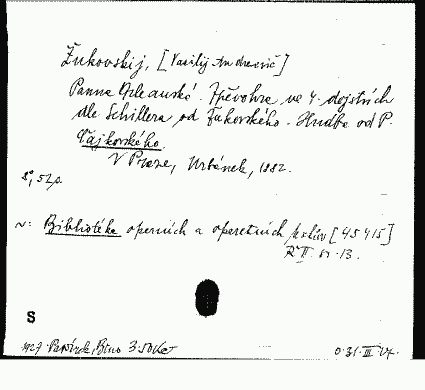 Žukovskij, [Vasilij Andreevič]
Panna Orleanská. Zpěvohra ve 4. dejstvích
dle Schillera od Žukovského. Hudba od P.
Čajkovského.
V Praze, Urbánek, 1882.
8°, 52 p.
~: Bibliotéka operních a operetních textův [45415]
Ř II. č. 13.
S
1927. Papírek, Brno 3.50 Kč
0.31.III.